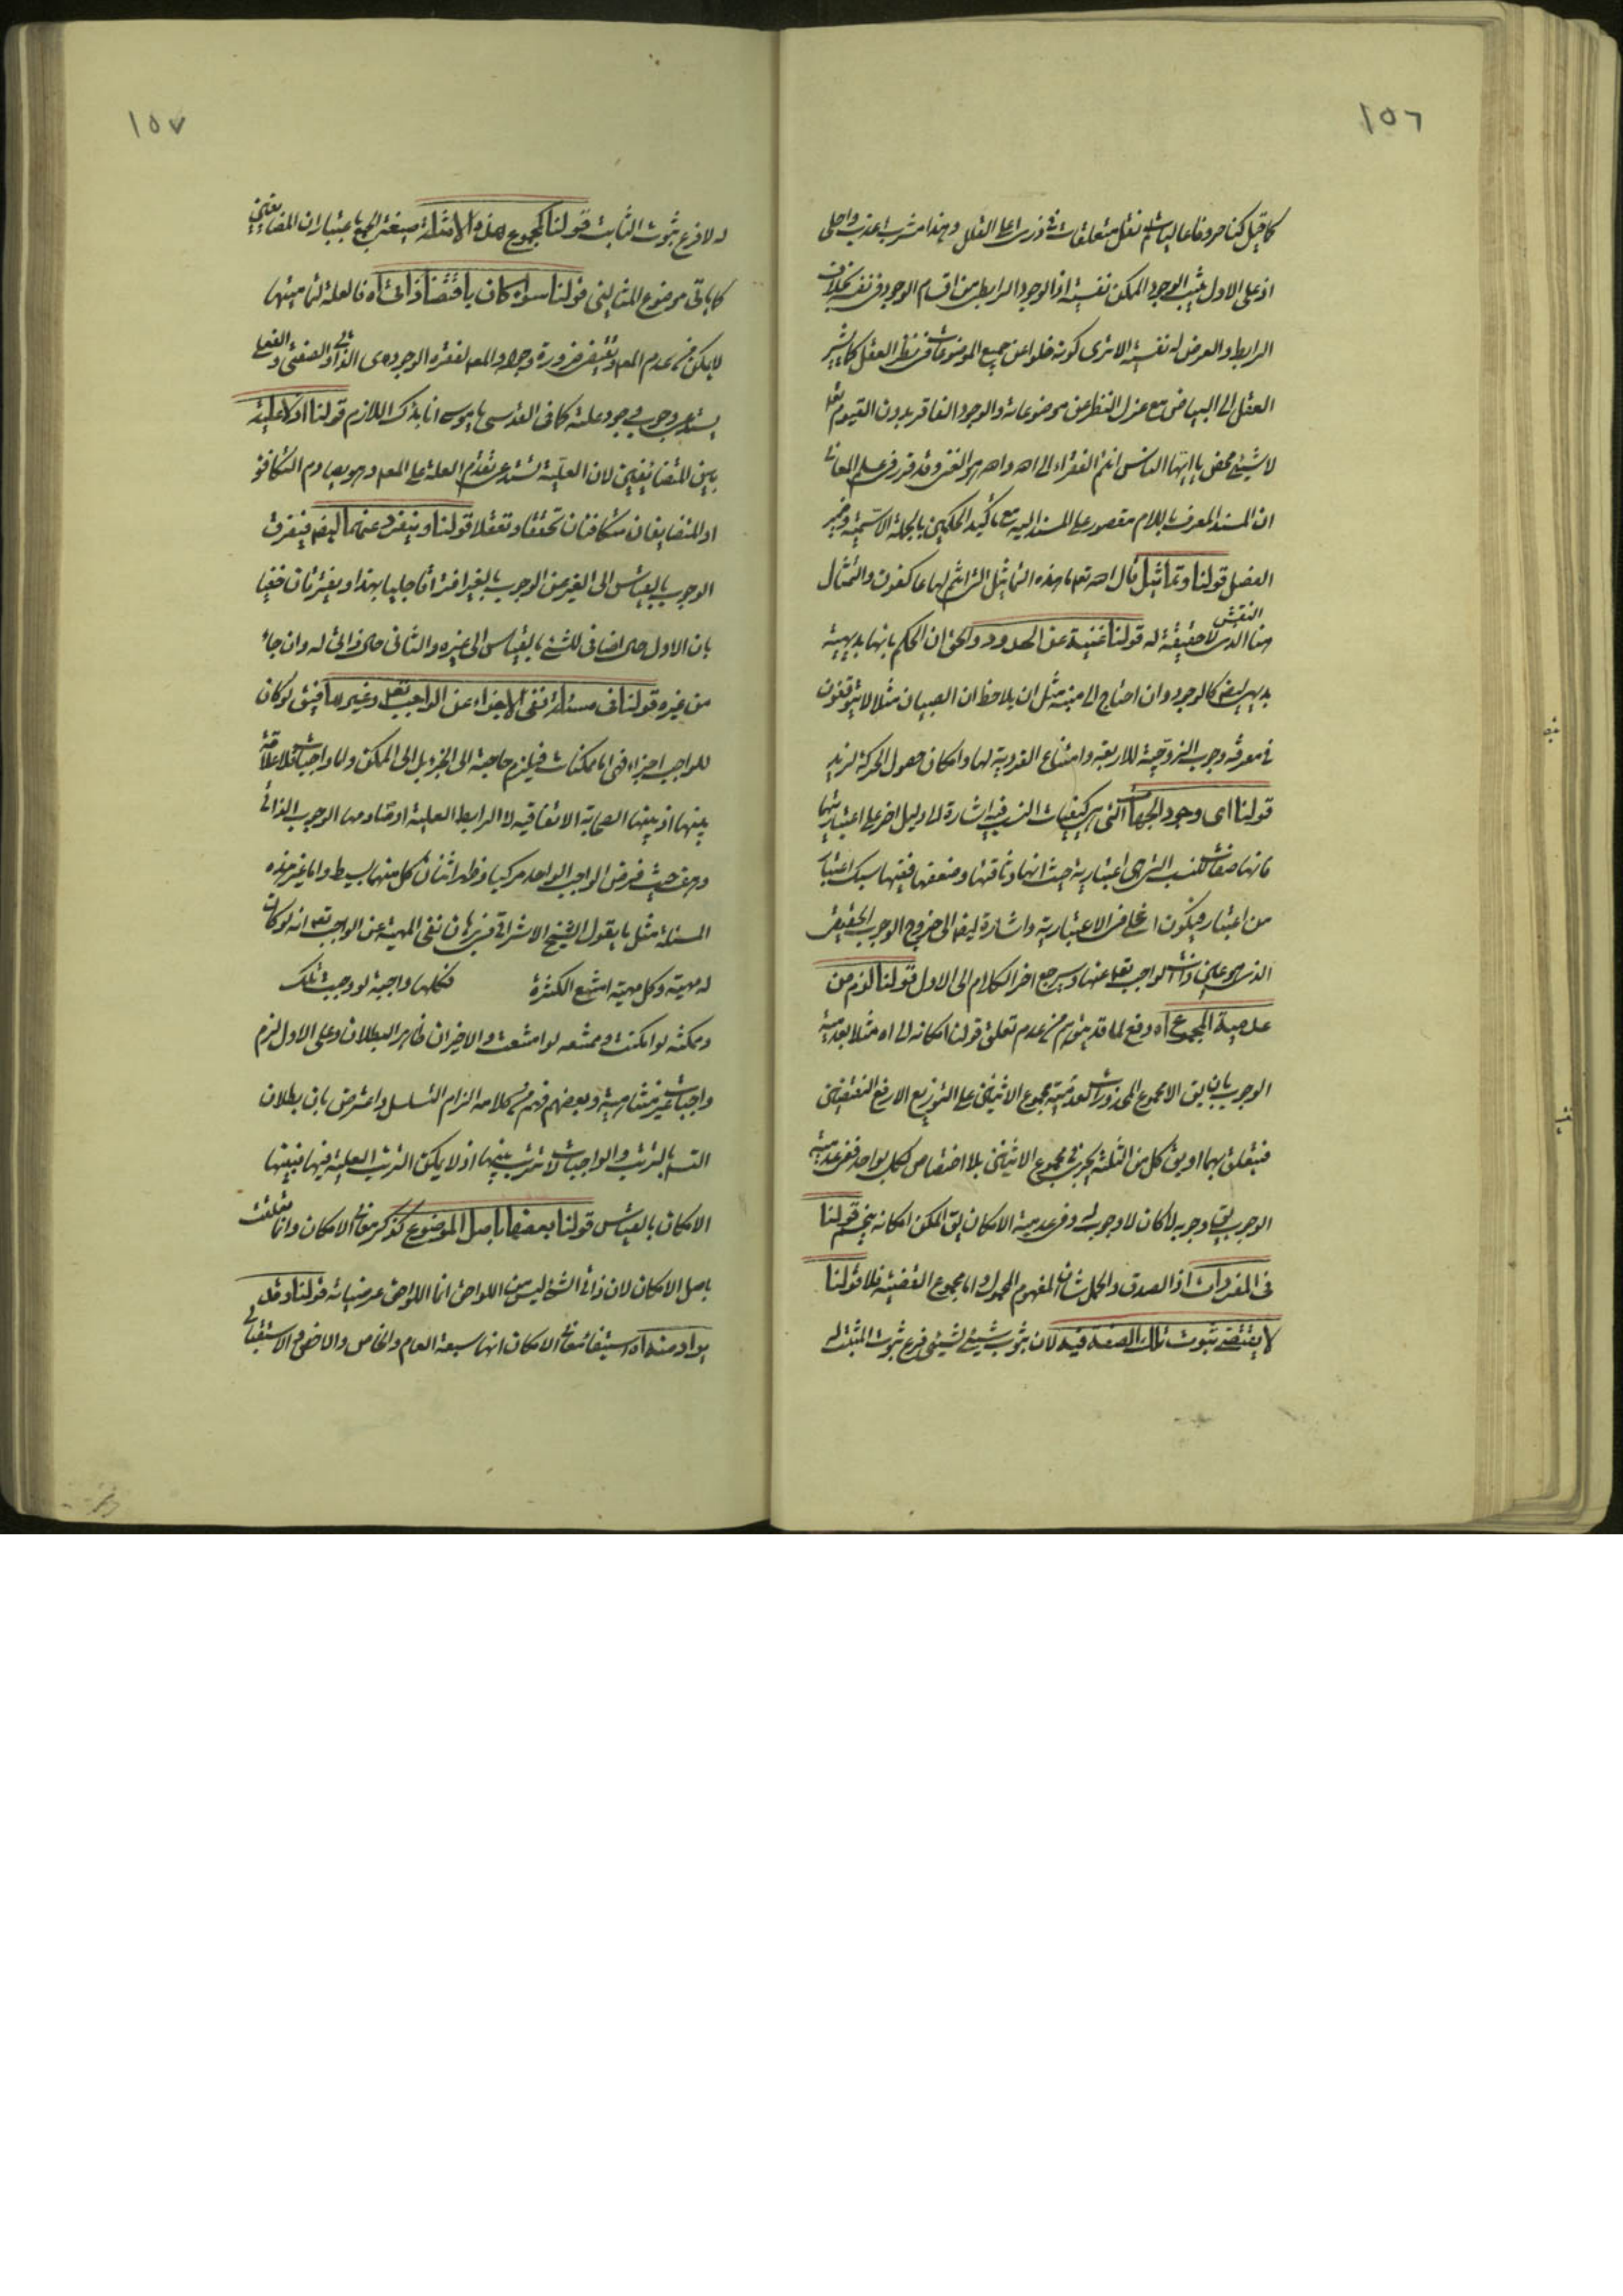 ١٥٦
كما قيل كنا حروفا عاليات لم نقل متعلقات فى ذرى اعلى القلل وهذا مشرب اعذب واحلى
اذ على الاول يثبت الوجود الممكن نفسية اذ الوجود الرابطى من اقسام الوجود فى نفسه بخلاف
الرابط والعرض له نفسية الا ترى كونه خلوا عن جميع الموضوعات فى نظر العقل كما يشير
العقل الى البياض مع عزل النظر عن موضوعاته والوجود الفاقر بدون القيوم تعالى
لا شيئ محض يا ايها الناس انتم الفقراء الى الله والله هو الغنى وقد قرر فى علم المعانى
ان المسند المعرف باللام مقصور على المسند اليه مع تاكيد الحكمين بالجملة الاسمية وضمير
الفصل قولنا وتماثيل قال الله تعالى ما هذه التماثيل التى انتم لها عاكفون والتمثال
النقش
هنا الذى لا حقيقة له قولنا غنية عن الحدود والحق ان الحكم بانها بديهية
بديهى ايضا كالوجود وان احتاج الى منبه مثل ان يلاحظ ان الصبيان مثلا لا يتوقفون
فى معرفة وجوب الزوجية للاربعة وامتناع الفردية لها وامكان حصول الحركة لزيد
قولنا اى وجود الجهات التى هى كيفيات النسب فيه اشارة الى دليل اخر على اعتباريتها
فانها صفات للنسب التى هى اعتبارية حيث انها وثاقتها وضعفها ففيها سبك اعتبار
من اعتبار فيكون اوغل فى الاعتبارية واشارة ايضا الى خروج الوجوب الحقيقى
الذى هو عين ذات الواجب تعالى عنها وسيرجع اخر الكلام الى الاول قولنا لزم من
عدمية المجموع اه دفع لما قد يتوهم من عدم تعلق قولنا امكانه لا اه مثلا بعدمية
الوجوب بان يق الا مجموع المحذورات لعدمية مجموع الاثنين على التوزيع الا رفع النقيضين
فيتعلق بهما او يق كل من الثلثة يجرى فى مجموع الاثنين بلا اختصاص لكل بواحد ففى عدمية
الوجوب يق وجوبه لا كان لا وجوب له وفى عدمية الامكان يق الممكن امكانه قولنا
فى المفردات اذ الصدق والحمل شان المفهوم المحمول واما مجموع القضية فلا قولنا
لا يقتضى ثبوت تلك الصفة فيه لان ثبوت شيئ لشيئ فرع ثبوت المثبت له
١٥٧
له لا فرع ثبوت الثابت قولنا لمجموع هذه الامثلة صيغة الجمع باعتبار ان المضايفين
كما ياتى موضوع المثالين قولنا سواء كان باقتضاء ذاتى اه فالعلة لتماميتها
لا يمكن عدم المعلول ضرورة وجوده والمعلول لفقره الوجودى الذاتى والصفتى والفعلى
يستدعى وجوب وجود علته كما فى القدسى يا موسى انا بدك اللازم قولنا اذ لا علية
بين المتضايفين لان العلية تستدعى تقدم العلة على المعلول وهو يصادم التكافؤ
اذ المتضايفان متكافئان تحققا وتعقلا قولنا وينفرد عنهما ايضا فيفرق
الوجوب بالقياس الى الغير من الوجوب بالغير افتراقا جليا بهذا ويفترقان خفيا
بان الاول حال اضافى للشئ بالقياس الى غيره والثانى حال ذاتى له وان جاء
من غيره قولنا فى مسئلة نفى الاجزاء عن الواجب تعالى وغيرها فيق لو كان
للواجب اجزاء فهى اما ممكنات فيلزم حاجته الى الجزء بل الى الممكن واما واجبات فلا علاقة
بينها اذ بينها الصحابة الاتفاقية لا الرابطة العلية اذ ينافيها الوجوب الذاتى
وهف حيث فرض الواجب الواحد مركبا وظهر اثنان كل منهما بسيط واما غير هذه
المسئلة مثل ما يقول الشيخ الاشراقى فى برهان نفى المهية عن الواجب تعالى انه لو كان
له مهية وكل مهية لا تمتنع الكثرة فكلها واجبة لو وجبت تلك
وممكنة لو امكنت وممتنعة لو امتنعت والاخيران ظاهر البطلان وعلى الاول لزم
واجبات غير متناهية وبعضهم فهم من كلامه الزام التسلسل واعترض بان بطلان
التسلسل بالترتب والواجبات لا ترتب بينها اذ لا يمكن الترتب العلية فيها فبينها
الامكان بالقياس قولنا بعضها باصل الموضوع كذكر معانى الامكان وانما تعلقت
باصل الامكان لان ذاتى الشئ ليس من اللواحق انما اللواحق عرضياته قولنا وقد
يراد منه اه استيفاء معانى الامكان انها سبعة العام والخاص والاخص والاستقبالى